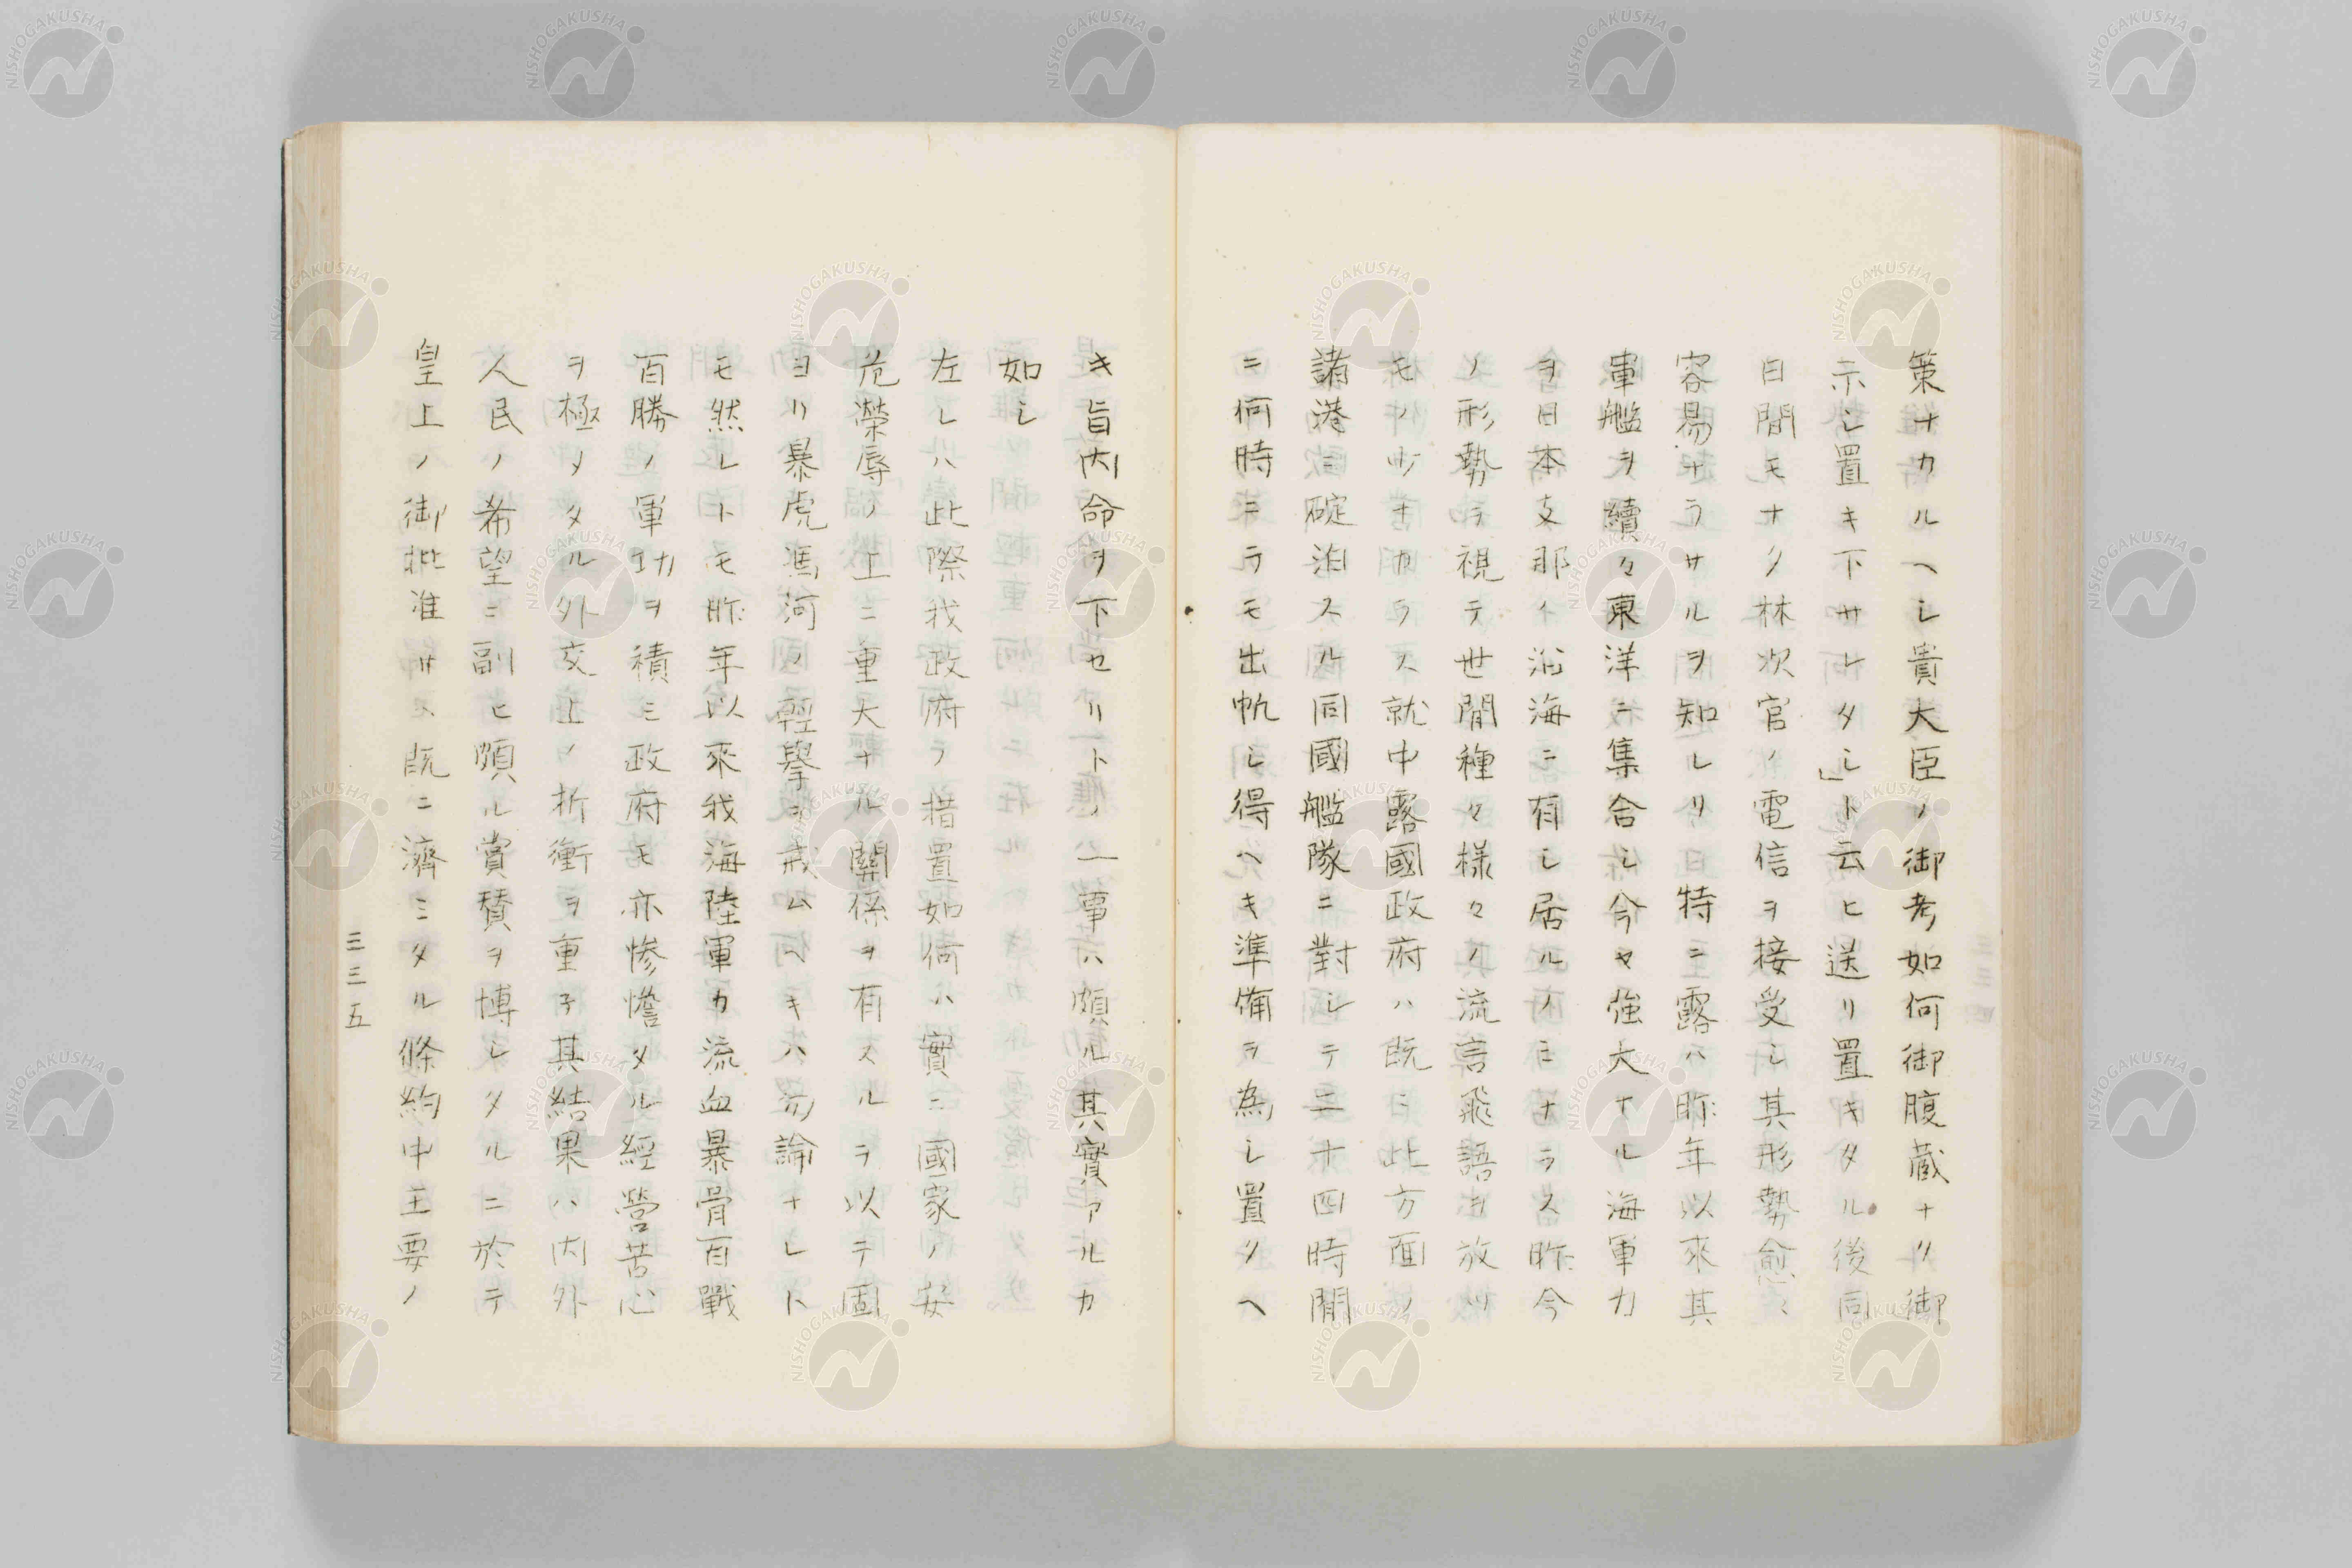 策ナカルヘシ貴大臣ノ御考如何御腹蔵ナリ御
示シ置キ下サレタシ」ト云ヒ送リ置キタル後同
日間モナク林次官ノ電信ヲ接受シ其形勢愈々
容易ナラサルヲ知レリ特ニ露ハ昨年以來其
軍艦ヲ續々東洋ニ集合シ今ヤ強大ナル海軍力
ヲ日本支那ノ沿海ニ有シ居ルノミナラス昨今
ノ形勢ヲ視テ世間種々様々ノ流言飛語ヲ放ツ
モノ少ナカラス就中露國政府ハ既ニ此方面ノ
諸港ニ碇泊スル同國艦隊ニ對シテ二十四時間
ニ何時ニテモ出帆シ得ヘキ準備ヲ為シ置クヘ
キ旨内命ヲ下セリトノ一事ハ頗ル其實アルカ
如シ
左レハ此際我政府ノ措置如何ハ實ニ國家ノ安
危榮辱ノ上ニ重大ナル關係ヲ有スルヲ以テ固
ヨリ暴虎馮河ノ輕擧ヲ戒ムヘキハ勿論ナレト
モ然レトモ昨年以來我海陸軍カ流血暴骨百戰
百勝ノ軍功ヲ積ミ政府モ亦惨憺タル經營苦心
ヲ極メタル外交上ノ折衝ヲ重子其結果ハ内外
人民ノ希望ニ副ヒ頗ル賞賛ヲ博シタルニ於テ
皇上ノ御批准サヘ既ニ濟ミタル條約中主要ノ
三三五
NISHOGAKUSHA